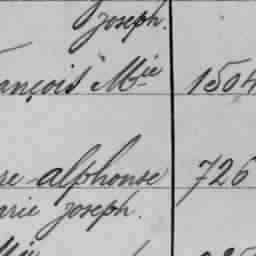 Joseph.
ançois Mie 1504
re alphonse 726
arie joseph.